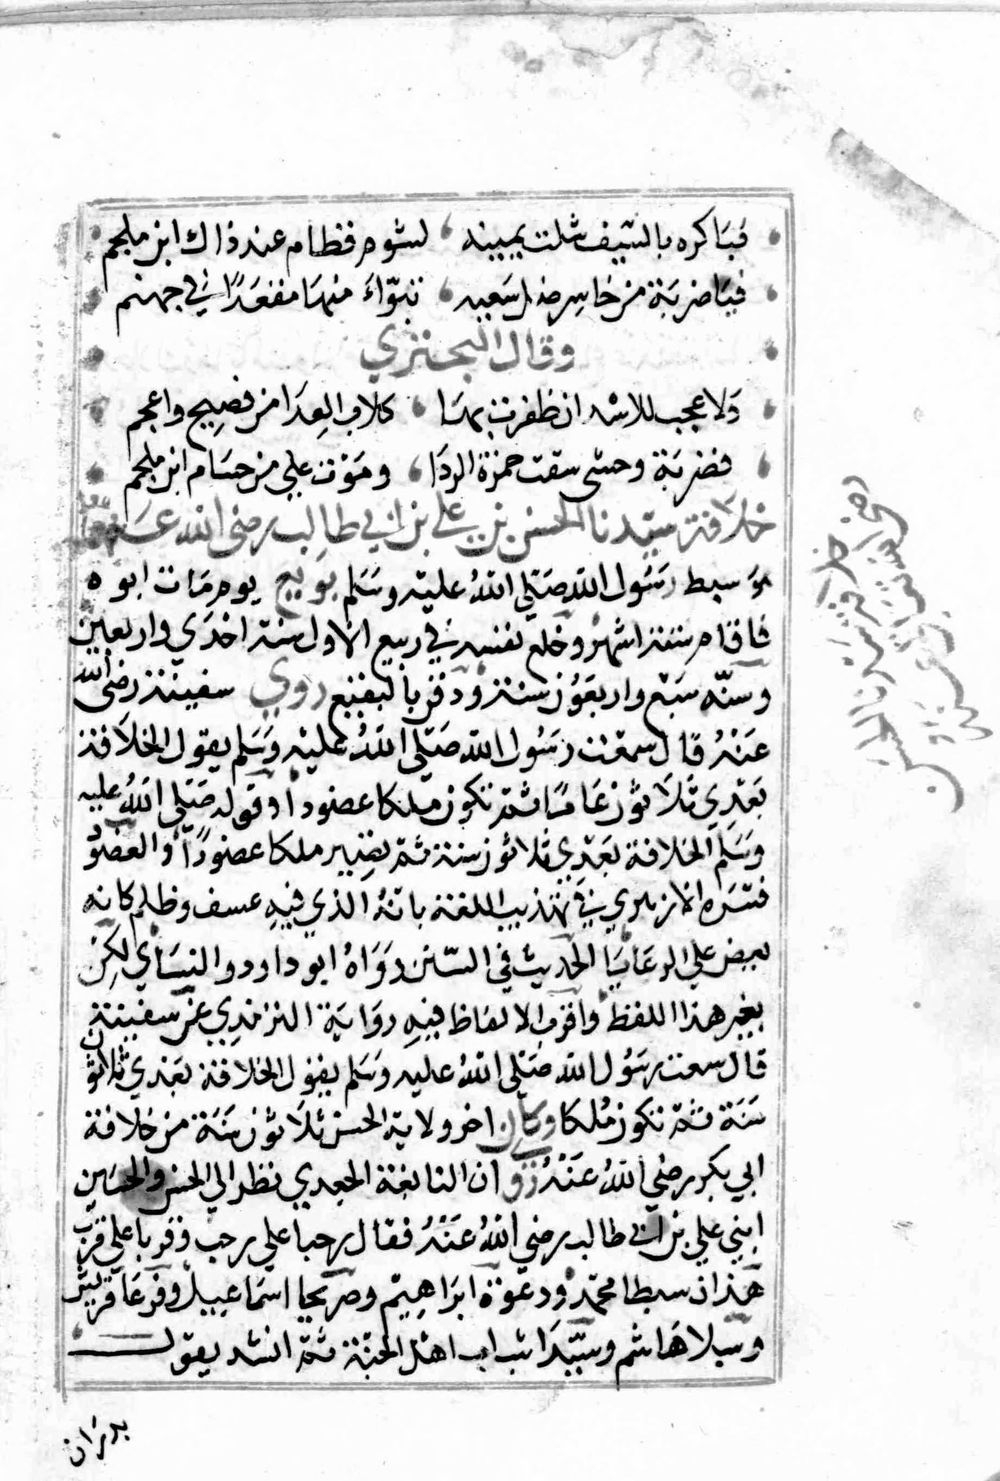 فباكره بالسيف شلت يمينه لشوم قطام عند ذاك ابن ملجم
فيا ضربة من خاسر ضل سعيه تبوّاء منها مقعدًا في جهنم
وقال البحتري
ولا عجب للاسد ان ظفرت بها كلاب العدا من فصيح واعجم
فضربة وحشي سقت حمزة الردا وموت علي من حسام ابن ملجم
خلافة سيدنا الحسن بن علي بن ابي طالب رضي الله عنهما
هو سبط رسول الله صلى الله عليه وسلم بويع يوم مات ابوه
فاقام ستة اشهر وخلع نفسه في ربيع الاول سنة احدي واربعين
وسنّه سبع واربعون سنة ودفن بالبقيع روي سفينة رضي الله
عنه قال سمعت رسول الله صلى الله عليه وسلم يقول الخلافة
بعدي ثلاثون عامًا ثم تكون ملكا عضودا وقوله صلى الله عليه
وسلم الخلافة بعدي ثلاثون سنة ثم يصير ملكا عضودًا والعضو
فسّره الازهري في تهذيب اللغة بانه الذي فيه عسف وظلم كانه
يعض علي الرعايا الحديث في السنن رواه ابو داود والنساي لكن
بغير هذا اللفظ واقرب الالفاظ فيه رواية الترمذي عن سفينة
قال سمعت رسول الله صلى الله عليه وسلم يقول الخلافة بعدي ثلاثون
سنة ثم تكون ملكا وكان اخر ولاية الحسن ثلاثون سنة من خلافة
ابي بكر رضي الله عنه روي ان النابغة الجعدي نظر الي الحسن والحسين
ابني علي بن ابي طالب رضي الله عنه فقال رحبا علي رحب وقربا علي قرب
هذان سبطا محمد ودعوة ابراهيم وصريحا اسماعيل وفرعا قريش
وسيلا هاشم وسيّدا شباب اهل الجنة ثم انشد يقول
بدران